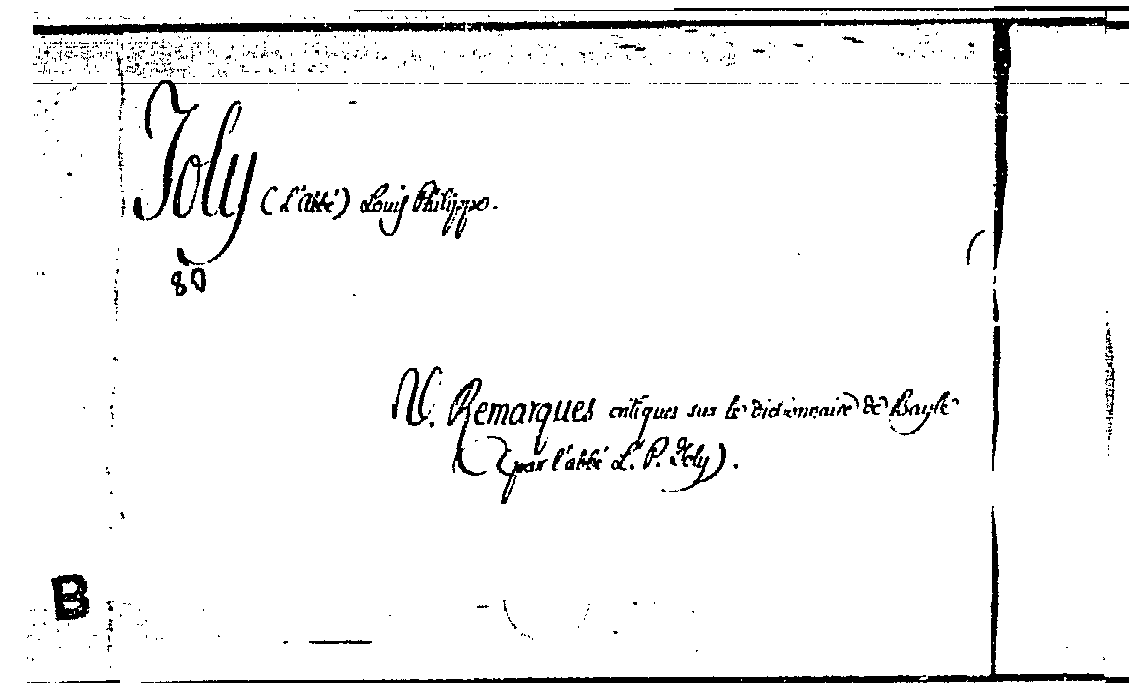 Joly (L'abbé) Louis Philippe.
80
V. Remarques critiques sur le dictionnaire de Bayle
(par l'abbé L. P. Joly).
B